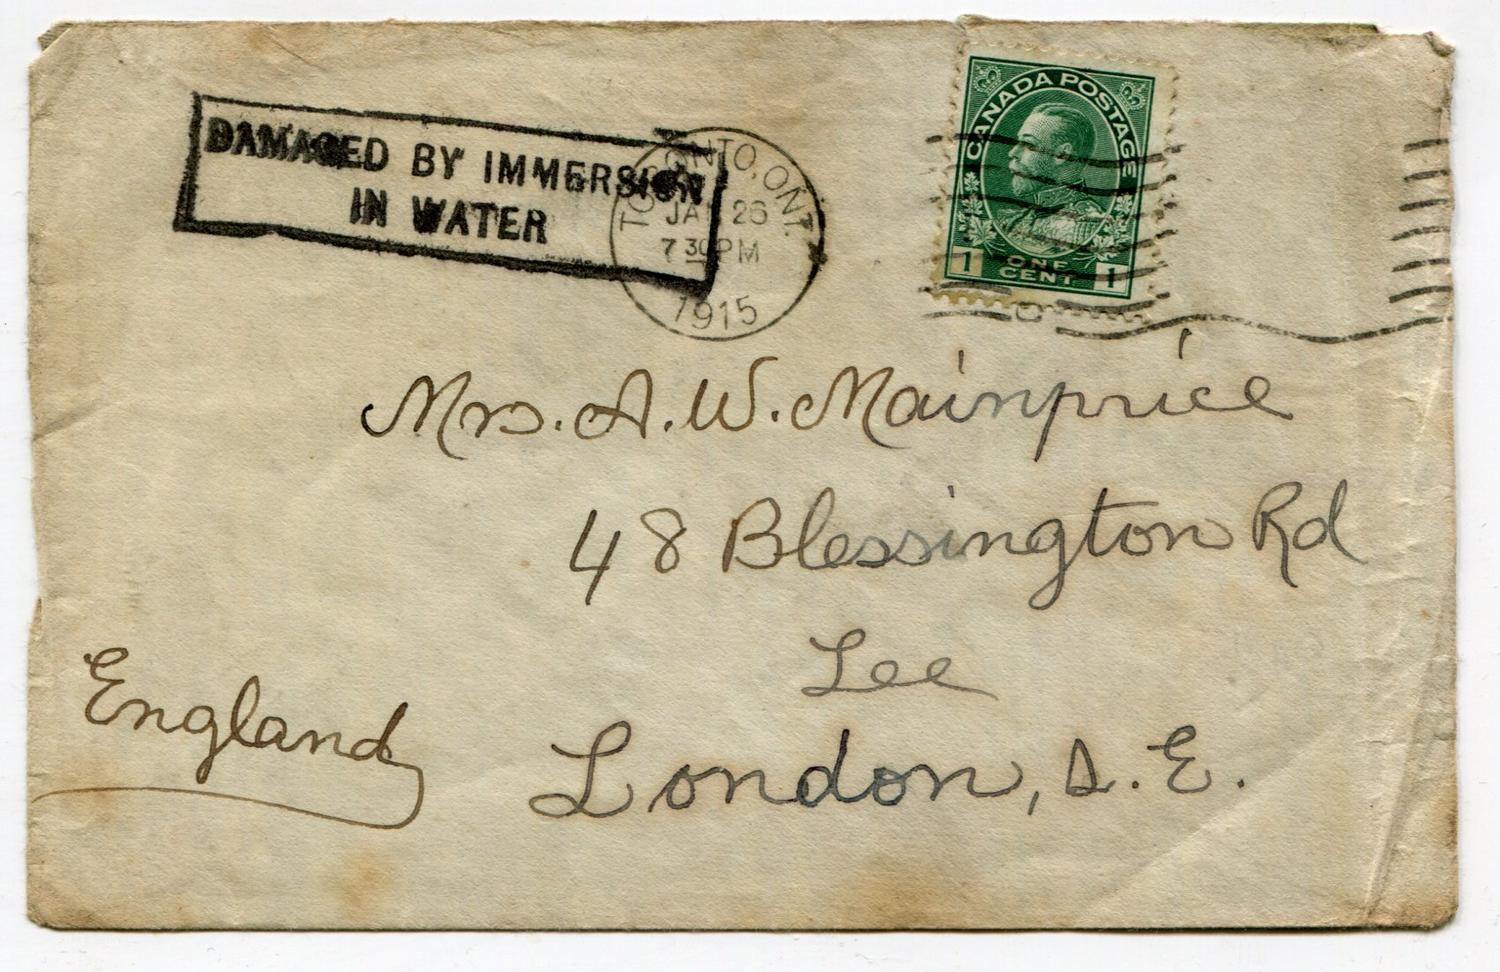 DAMAGED BY IMMERSION
IN WATER
TORONTO, ONT.
JAN 26
7 30 PM
1915
CANADA POSTAGE
ONE
CENT
1 1
Mrs. A. W. Mainprice
48 Blessington Rd
Lee
London, S. E.
England